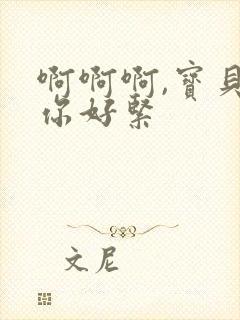 啊啊啊,寶貝
你好緊
文尼